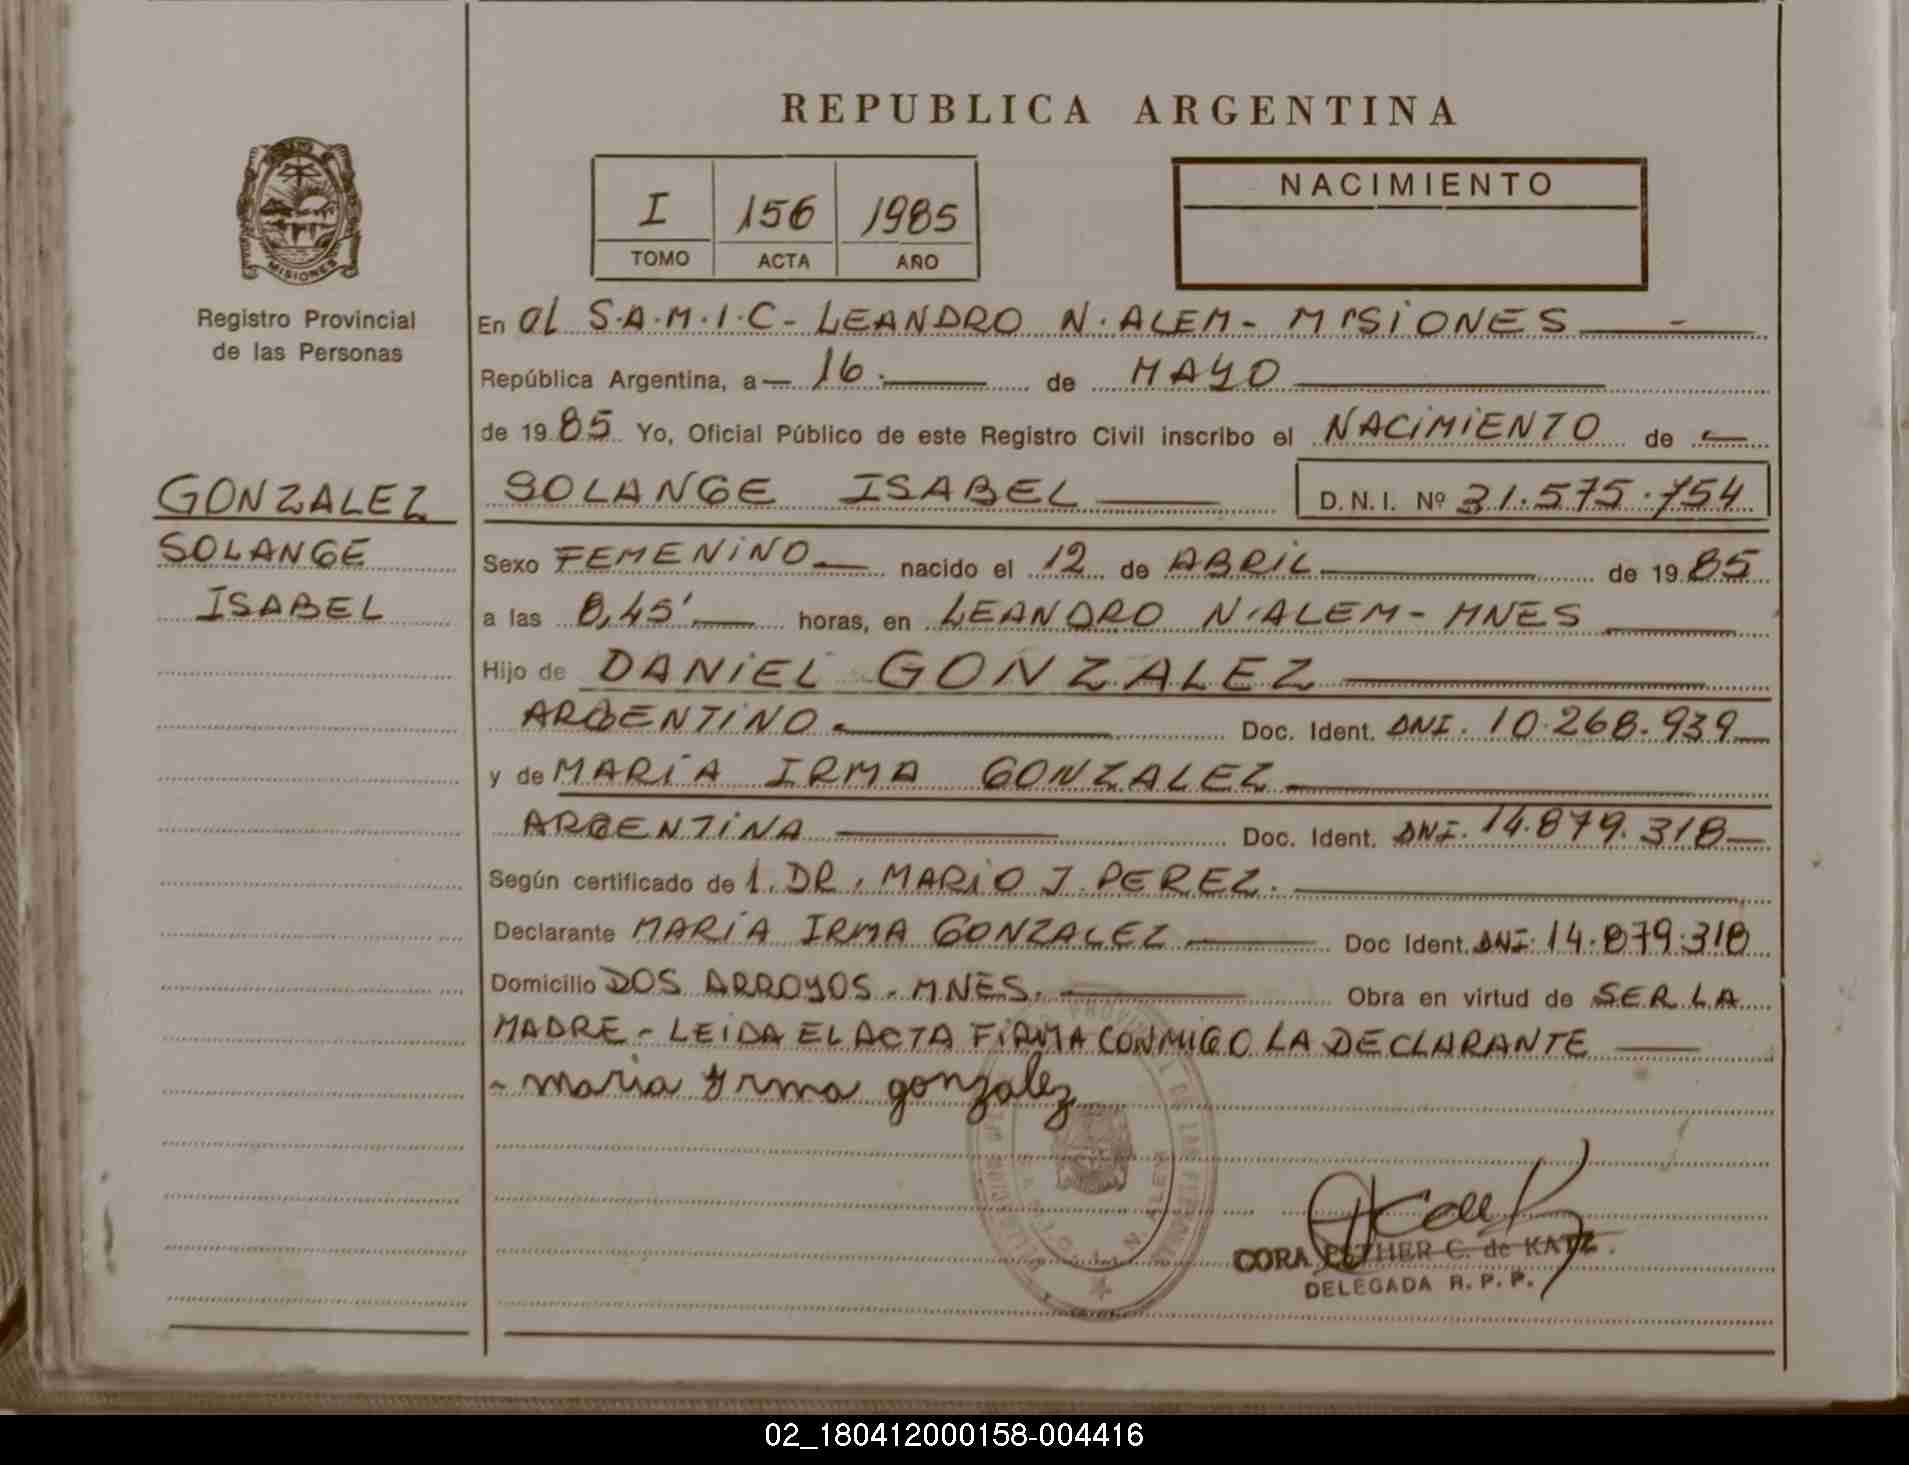 REPUBLICA ARGENTINA
I 156 1985
TOMO ACTA AÑO
NACIMIENTO
MISIONES
Registro Provincial
de las Personas
GONZALEZ
SOLANGE
ISABEL
En el S.A.M.I.C - LEANDRO N. ALEM - MISIONES
República Argentina, a 16 de MAYO
de 1985 Yo, Oficial Público de este Registro Civil inscribo el NACIMIENTO de
SOLANGE ISABEL D.N.I. Nº 31.575.754
Sexo FEMENINO nacido el 12 de ABRIL de 1985
a las 8,45' horas, en LEANDRO N. ALEM - MNES
Hijo de DANIEL GONZALEZ
ARGENTINO Doc. Ident. DNI. 10.268.939
y de MARÍA IRMA GONZALEZ
ARGENTINA Doc. Ident. DNI. 14.879.318
Según certificado de 1. DR. MARIO J. PEREZ.
Declarante MARÍA IRMA GONZALEZ Doc Ident. DNI. 14.879.318
Domicilio DOS ARROYOS - MNES. Obra en virtud de SER LA
MADRE - LEIDA EL ACTA FIRMA CONMIGO LA DECLARANTE
- maria Yrma gonzalez
CORA ESTHER C. de KATZ
DELEGADA R. P. P.
02_180412000158-004416